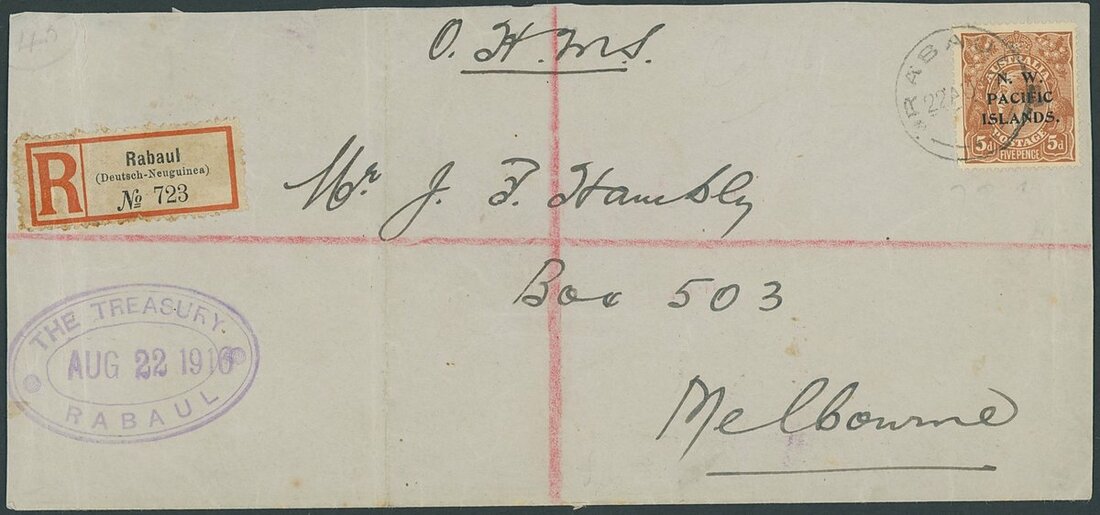 O. H. M. S.
RABAUL
22 AU
AUSTRALIA
N. W.
PACIFIC
ISLANDS.
POSTAGE
5d FIVEPENCE 5d
R
Rabaul
(Deutsch-Neuguinea)
№ 723
Mr J. F. Hambly
Box 503
Melbourne
THE TREASURY.
AUG 22 1916
RABAUL